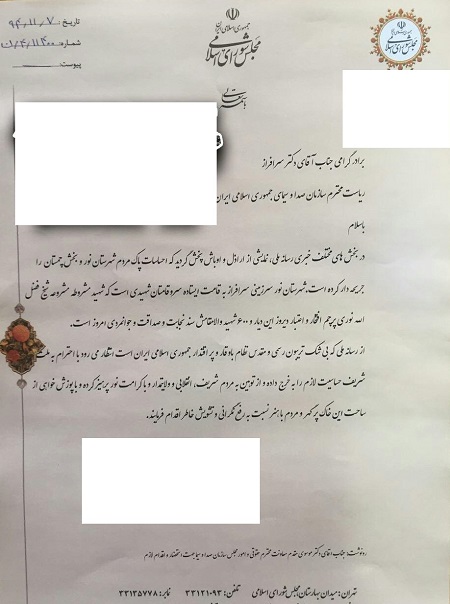 تاریخ: ۹۴،۱۱،۷
شماره:
پیوست:
جمهوری اسلامی ایران
مجلس شورای اسلامی
مجلس شورای اسلامی
باسمه تعالی
برادر گرامی جناب آقای دکتر سرافراز
ریاست محترم سازمان صدا و سیمای جمهوری اسلامی ایران
باسلام
در بخش های مختلف خبری رسانه ملی، نمایشی از اراذل و اوباش پخش گردید که احساسات پاک مردم شهرستان نور و بخش چمستان را
جریحه دار کرده است، شهرستان نور سرزمینی سرافراز به قامت ایستاده سروقامتان شهیدی است که شهید مشروطه مشروعه شیخ فضل
الله نوری پرچم افتخار و اعتبار دیروز این دیار و ۶۰۰ شهید والامقامش سند نجابت و صداقت و جوانمردی امروز است.
از رسانه ملی که بی شک تریبون رسمی و مقدس نظام باوقار و پر اقتدار جمهوری اسلامی ایران است انتظار می رود با احترام به ملت
شریف حساسیت لازم را به خرج داده و از توهین به مردم شریف، انقلابی و ولایتمدار و با کرامت نور پرهیز کرده و با پوزش خواهی از
ساحت این خاک پر گهر و مردم با هنر نسبت به رفع نگرانی و تشویش خاطر اقدام فرمایند.
رونوشت: جناب آقای دکتر موسوی مقدم معاونت محترم حقوقی و امور مجلس سازمان صدا و سیما جهت استحضار و اقدام لازم
تهران: میدان بهارستان، مجلس شورای اسلامی تلفن: ۳۳۱۲۱۰۹۳ نمابر: ۳۳۱۳۵۷۷۸